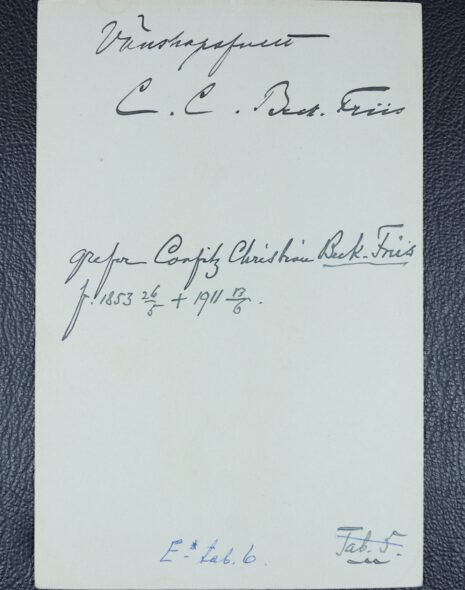 Vänskapsfullt
C. C. Beck-Friis
grefve Corfitz Christian Beck-Friis
f. 1853 26/5 + 1911 13/6.
E-* tab. 6.
Tab. 5.